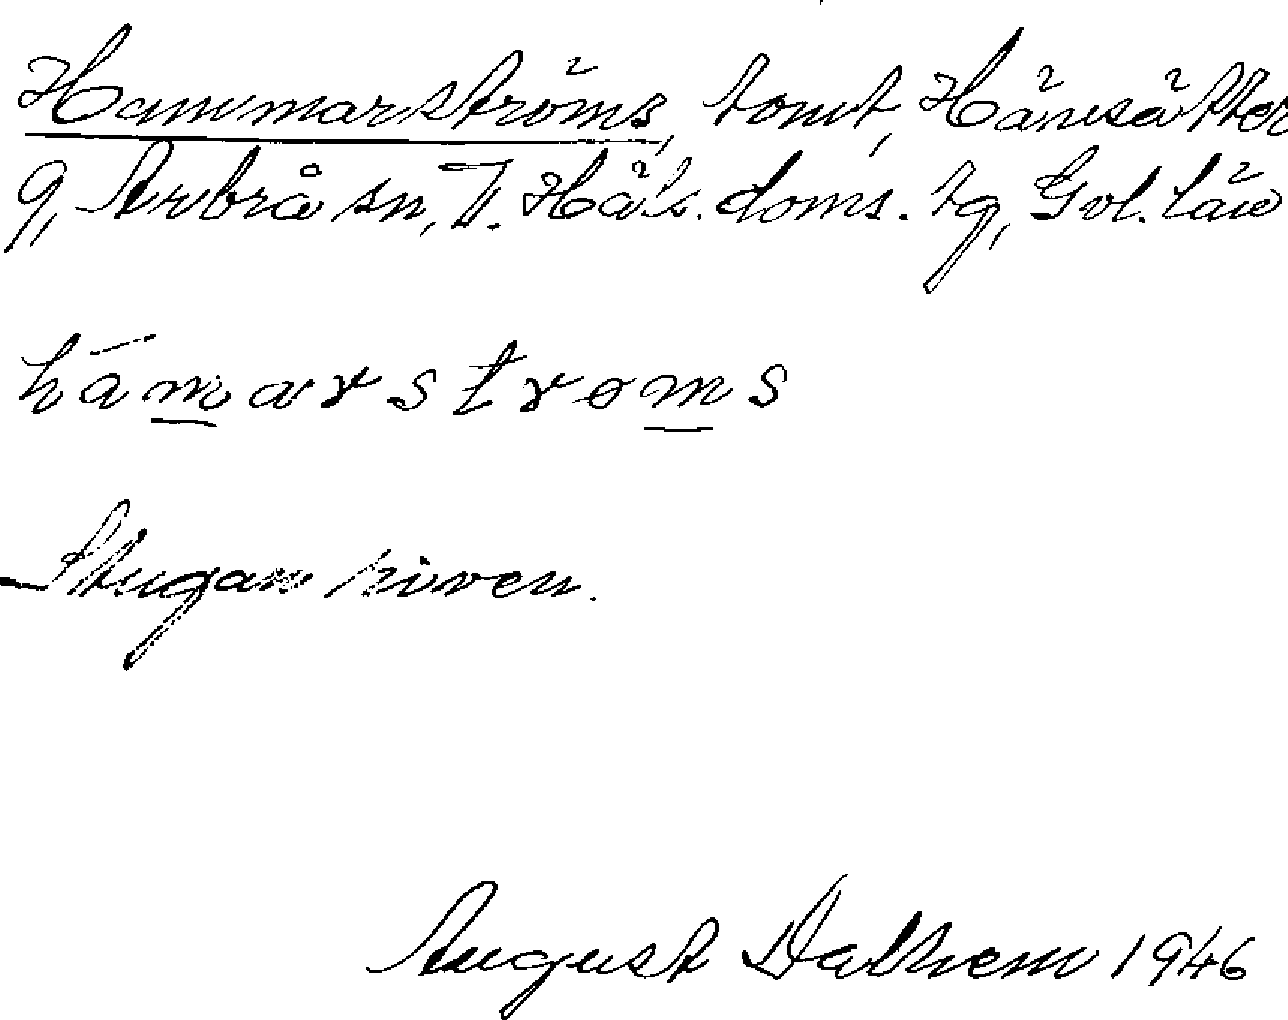 Hammarströms, tomt, Hänsätter
9, Arbrå sn, V. Häls. doms. tg, Gvl. län
hámarstroms
Stugan riven.
August Dalhem 1946